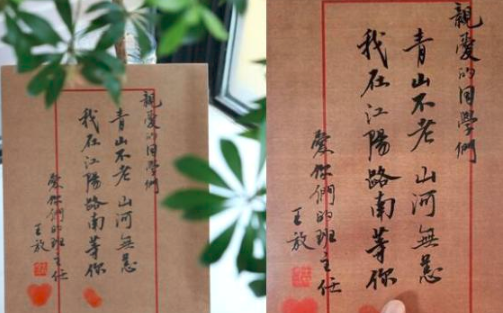 親愛的同學們
青山不老 山河無恙
我在江陽路南等你
愛你們的班主任
王放
親愛的同學們
青山不老 山河無恙
我在江陽路南等你
愛你們的班主任
王放